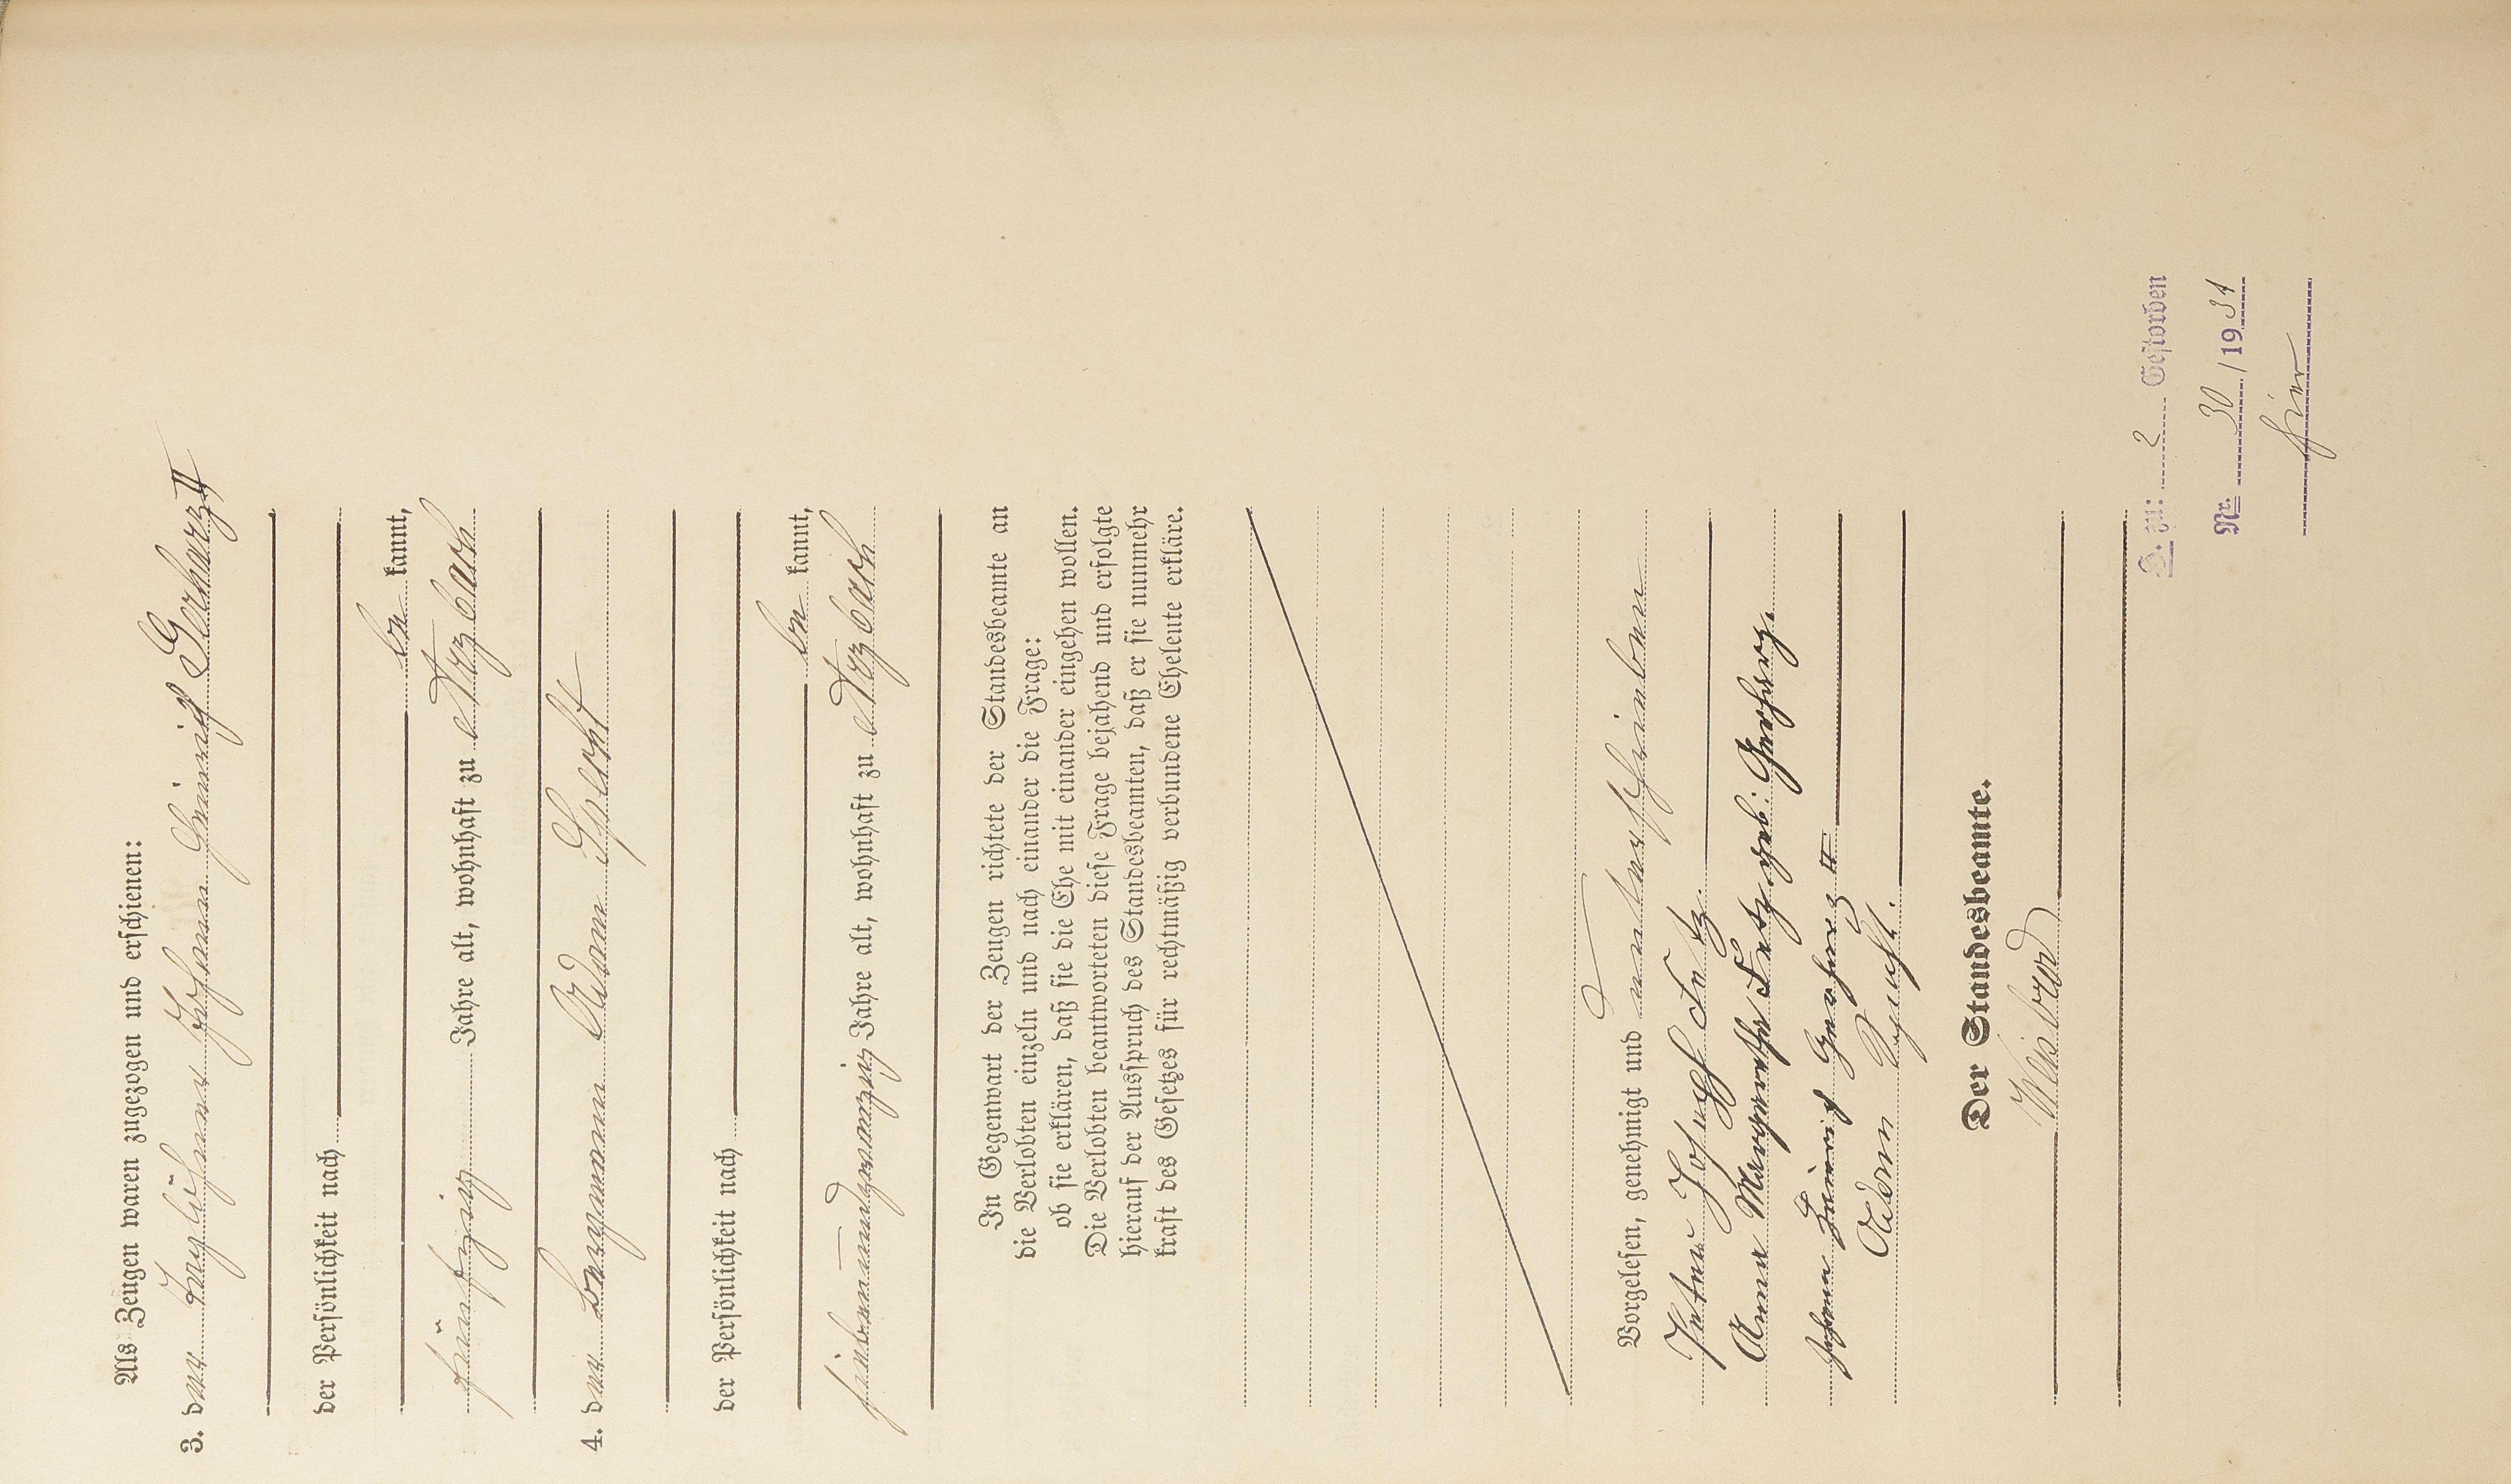 Als Zeugen waren zugezogen und erschienen:
3. der Taglöhner Johann Heinrich Gerharz II
der Persönlichkeit nach
be kannt,
fünfzig Jahre alt, wohnhaft zu Arzbach
4. der Bergmann Adam Specht
der Persönlichkeit nach
be kannt,
siebenundzwanzig Jahre alt, wohnhaft zu Arzbach
In Gegenwart der Zeugen richtete der Standesbeamte an
die Verlobten einzeln und nach einander die Frage:
ob sie erklären, daß sie die Ehe mit einander eingehen wollen.
Die Verlobten beantworteten diese Frage bejahend und erfolgte
hierauf der Ausspruch des Standesbeamten, daß er sie nunmehr
kraft des Gesetzes für rechtmäßig verbundene Eheleute erkläre.
Vorgelesen, genehmigt und unterschrieben
Peter Joseph Fetz.
Anna Margaretha Fetz geb: Gerharz.
Johann Heinrich Gerharz II
Adam Specht.
Der Standesbeamte.
Weisbrod
D. zu: 2 Gestorben
Nr. 30 / 1931
hier